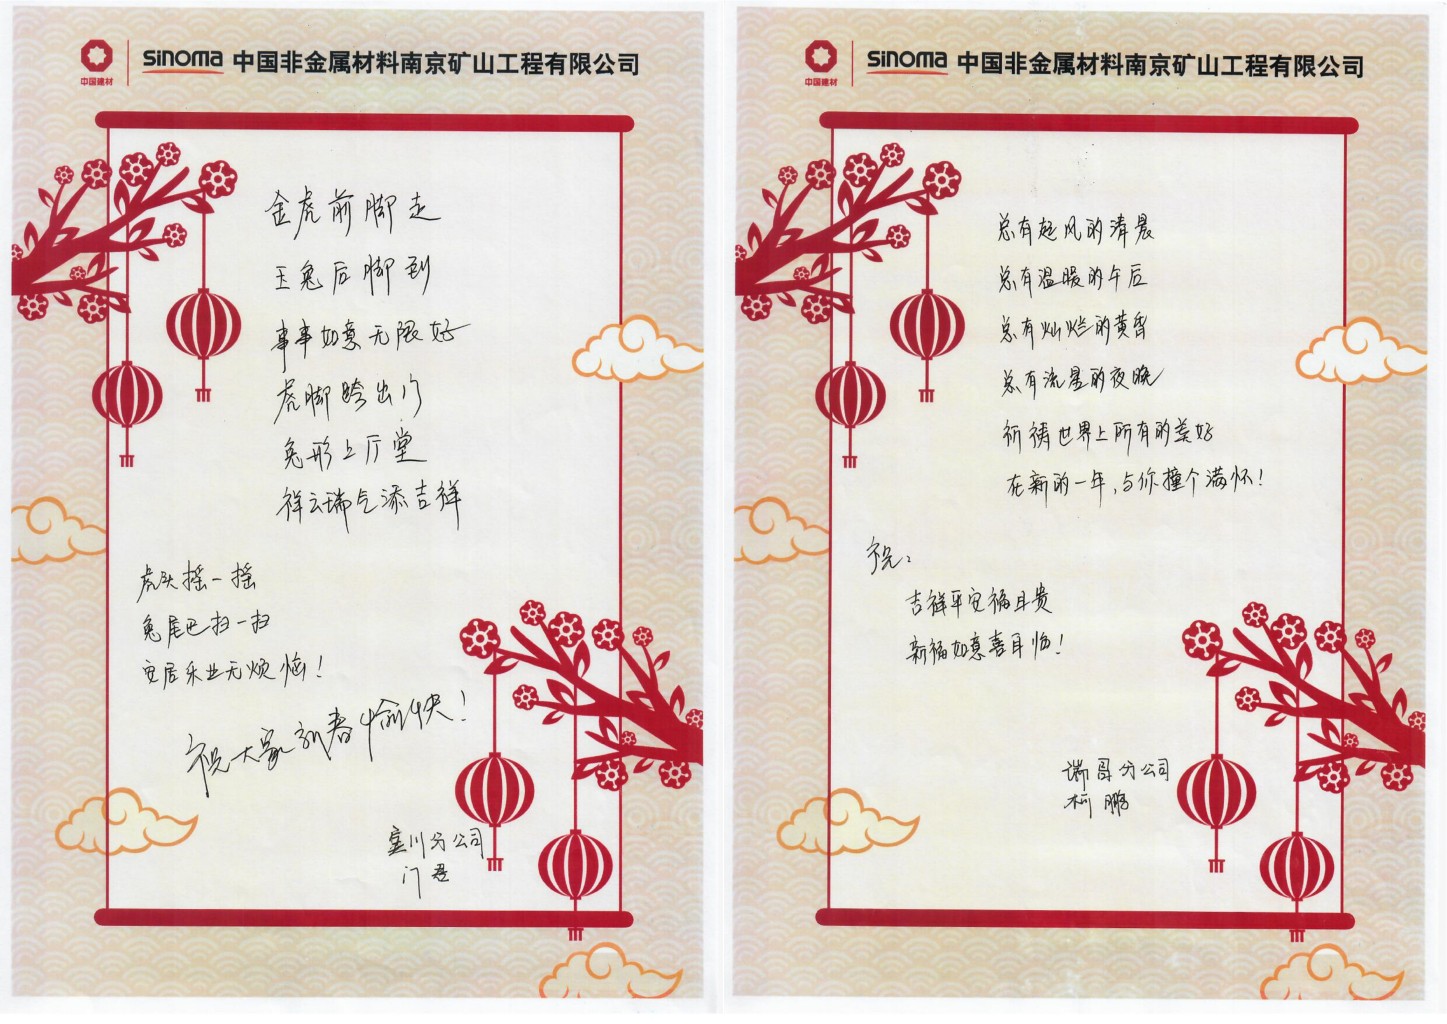 中国建材
sinoma 中国非金属材料南京矿山工程有限公司
金虎前脚走
玉兔后脚到
事事如意无限好
虎脚跨出门
兔形上厅堂
祥云瑞气添吉祥
虎头摇一摇
兔尾巴扫一扫
安居乐业无烦恼！
祝大家新春愉快！
川分公司
门
中国建材
sinoma 中国非金属材料南京矿山工程有限公司
总有起风的清晨
总有温暖的午后
总有灿烂的黄昏
总有流星的夜晚
祈祷世界上所有的美好
在新的一年，与你撞个满怀！
祝：
吉祥平安福且贵
新福如意喜自临！
瑞昌分公司
柯鹏